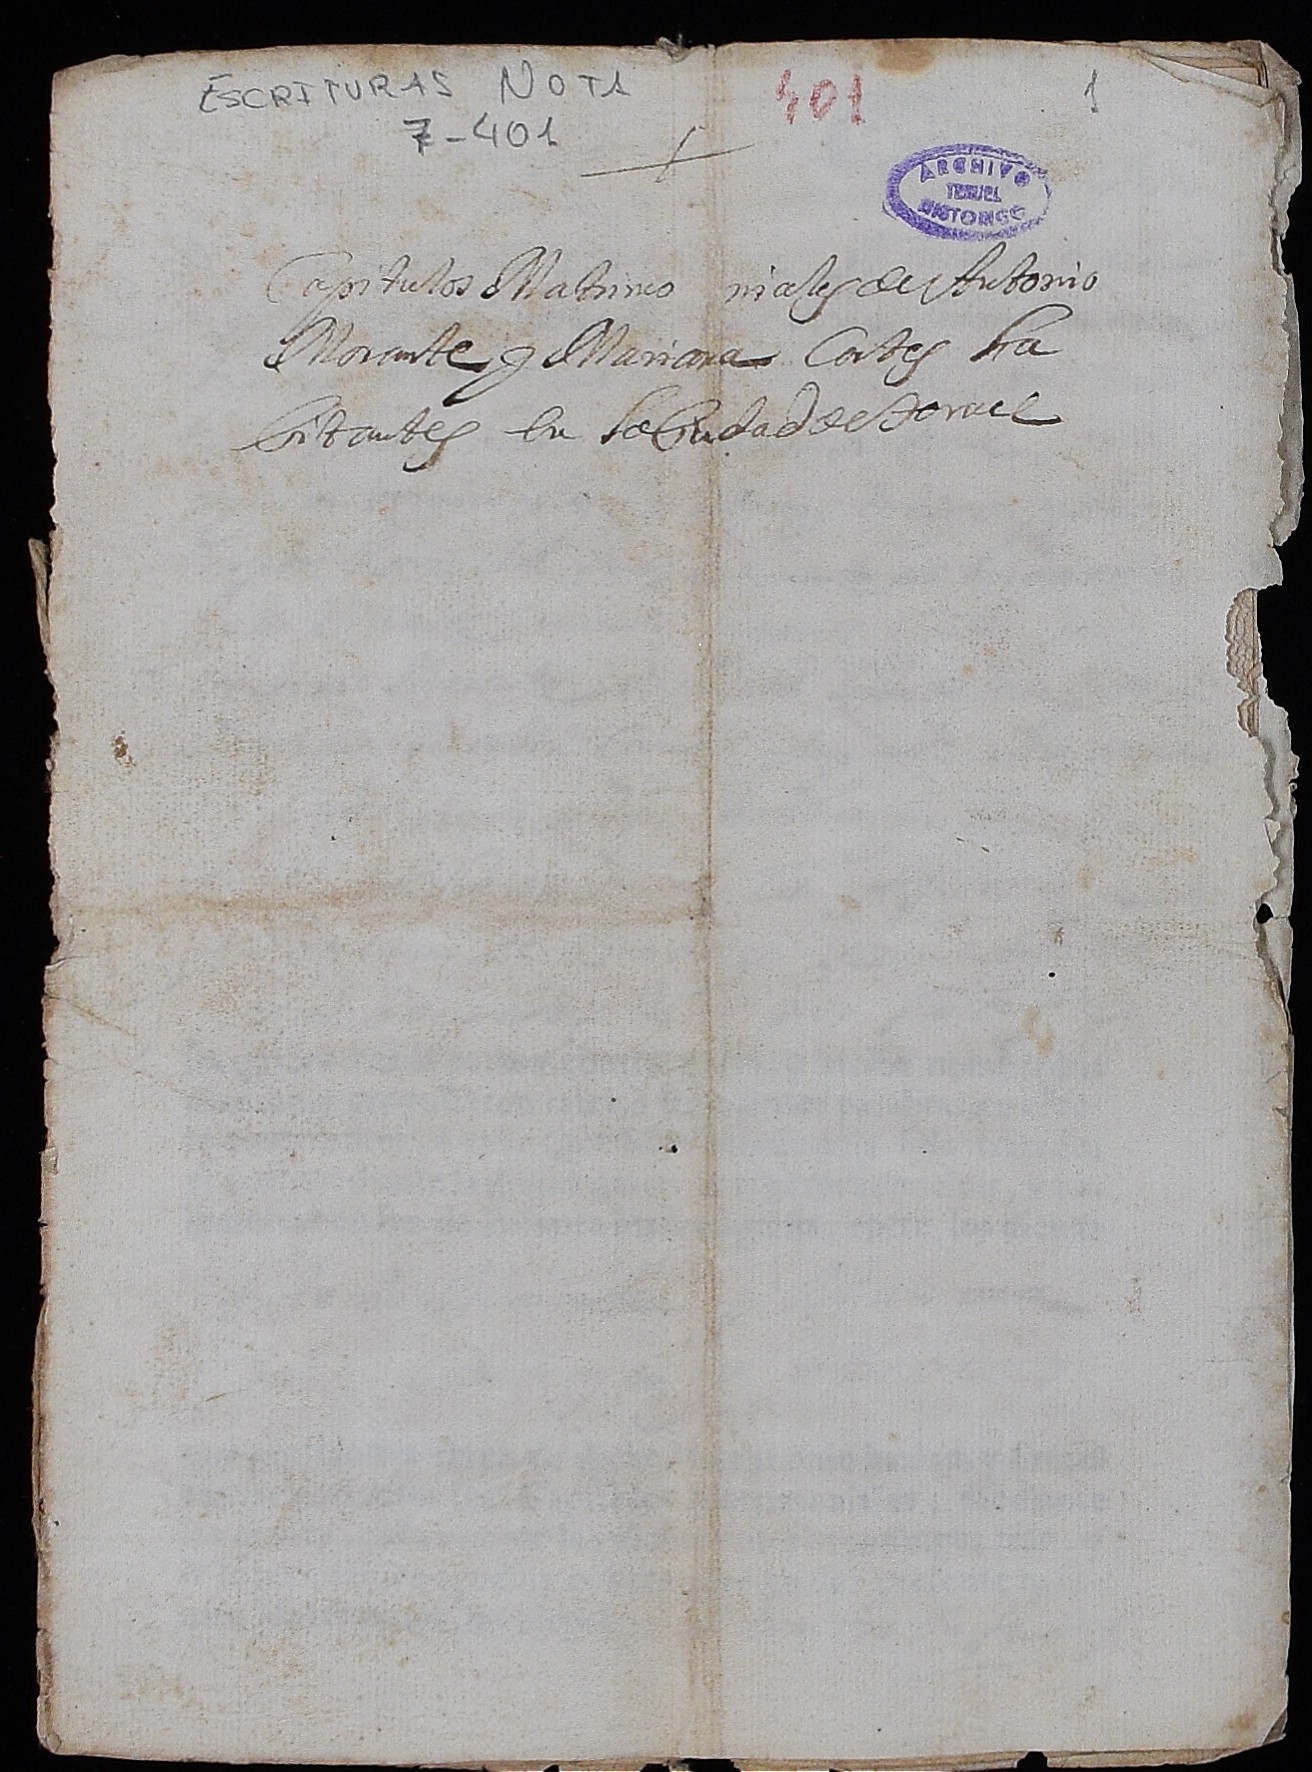 ESCRITURAS NOTA 401 1
7-401
ARCHIVO
TERUEL
HISTORICO
Capitulos Matrimo niales de Antonio
Morante y Mariana Cortes ha
bitantes en la Ciudad de Teruel